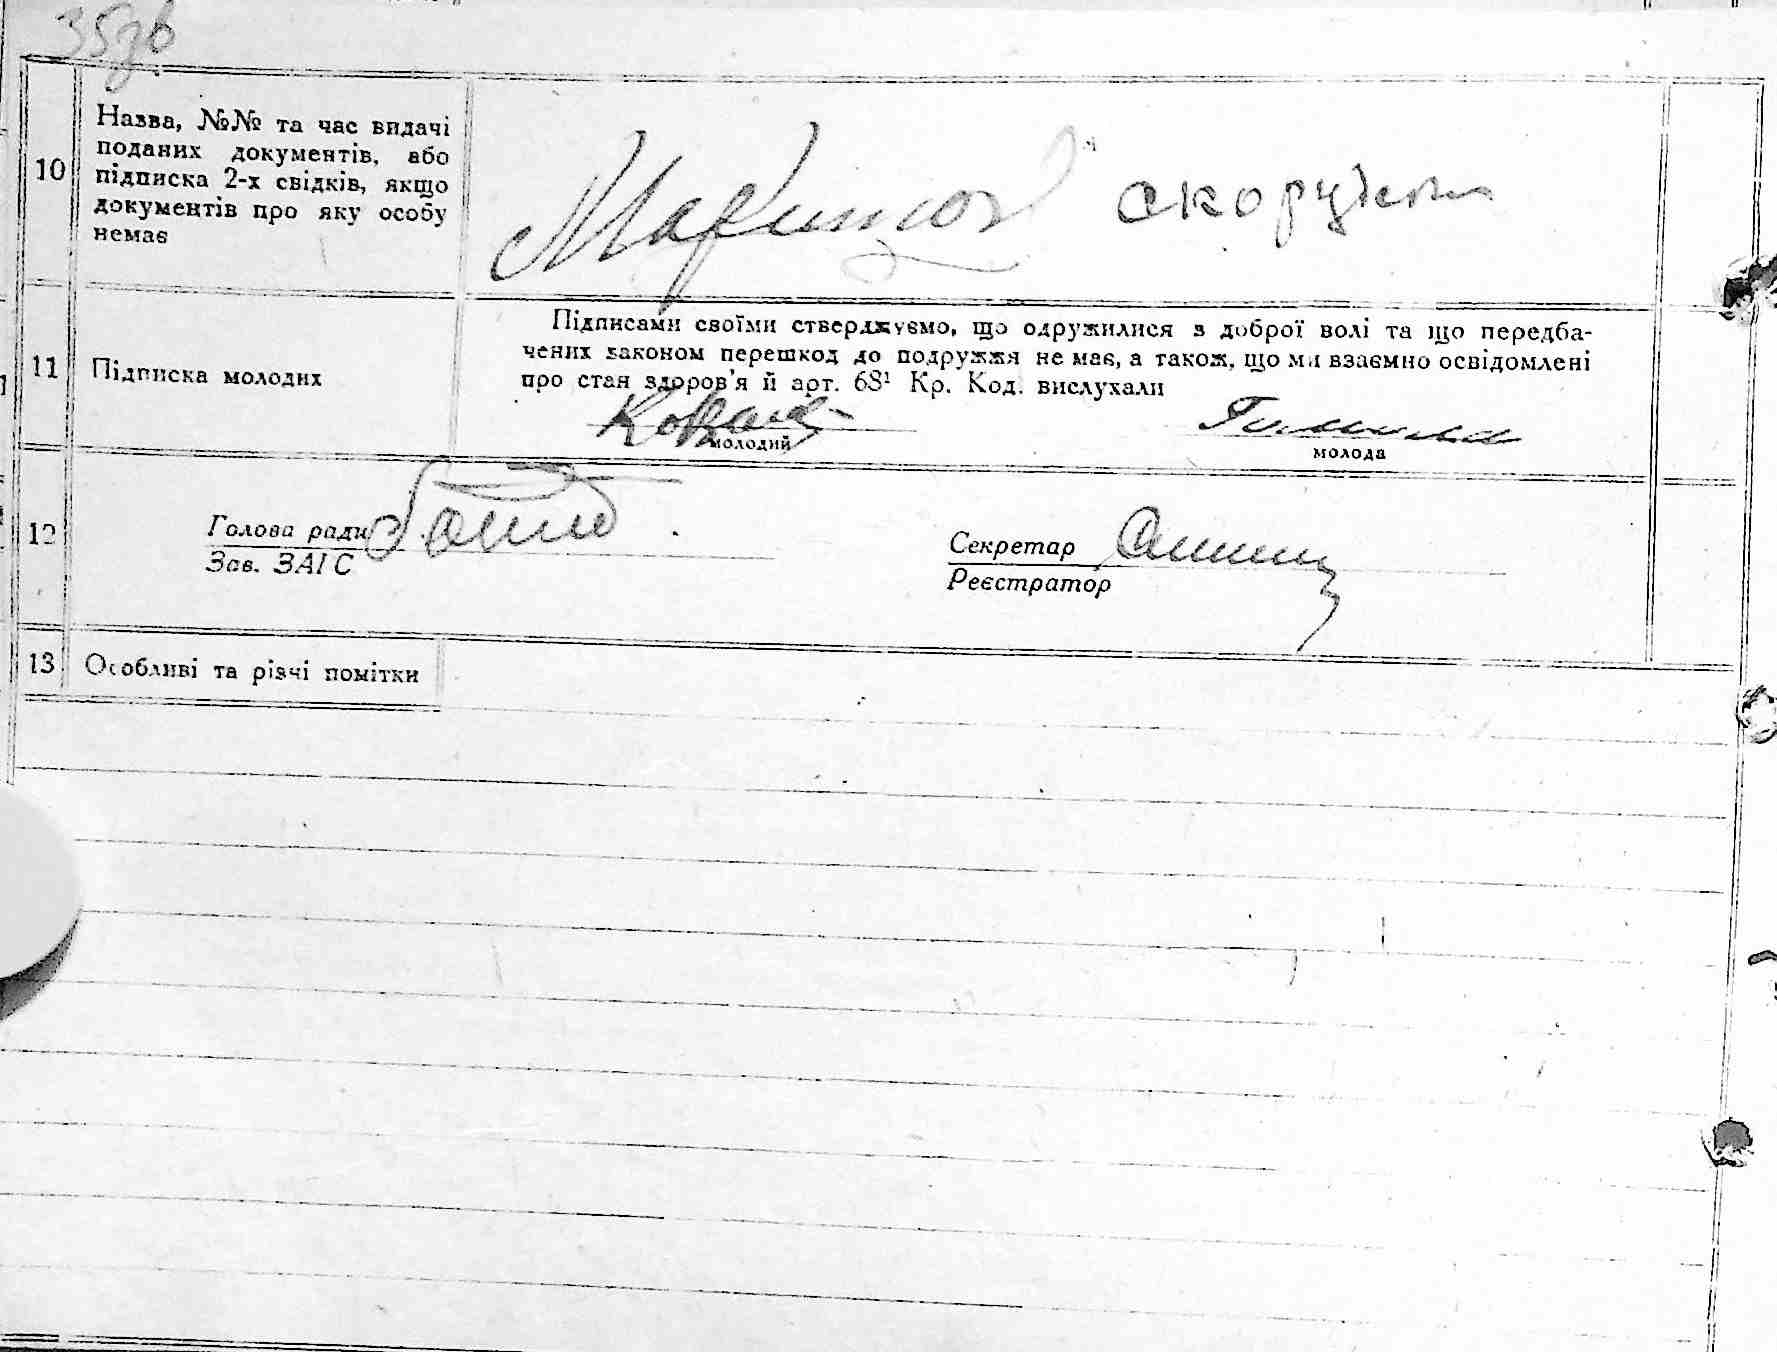 35зв
10
Назва, №№ та час видачі
поданих документів, або
підписка 2-х свідків, якщо
документів про яку особу
немає
11
Підписка молодих
Підписами своїми стверджуємо, що одружилися з доброї волі та що передба-
чених законом перешкод до подружжя не має, а також, що ми взаємно освідомлені
про стан здоров'я й арт. 68¹ Кр. Код. вислухали
молодий
молода
12
Голова ради
Зав. ЗАГС
Секретар
Реєстратор
13
Особливі та різні помітки